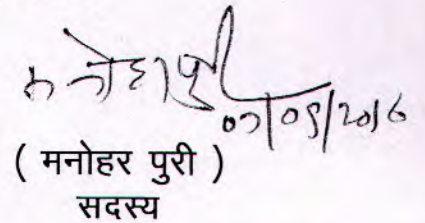 मनोहर पुरी
07/09/2016
( मनोहर पुरी )
सदस्य